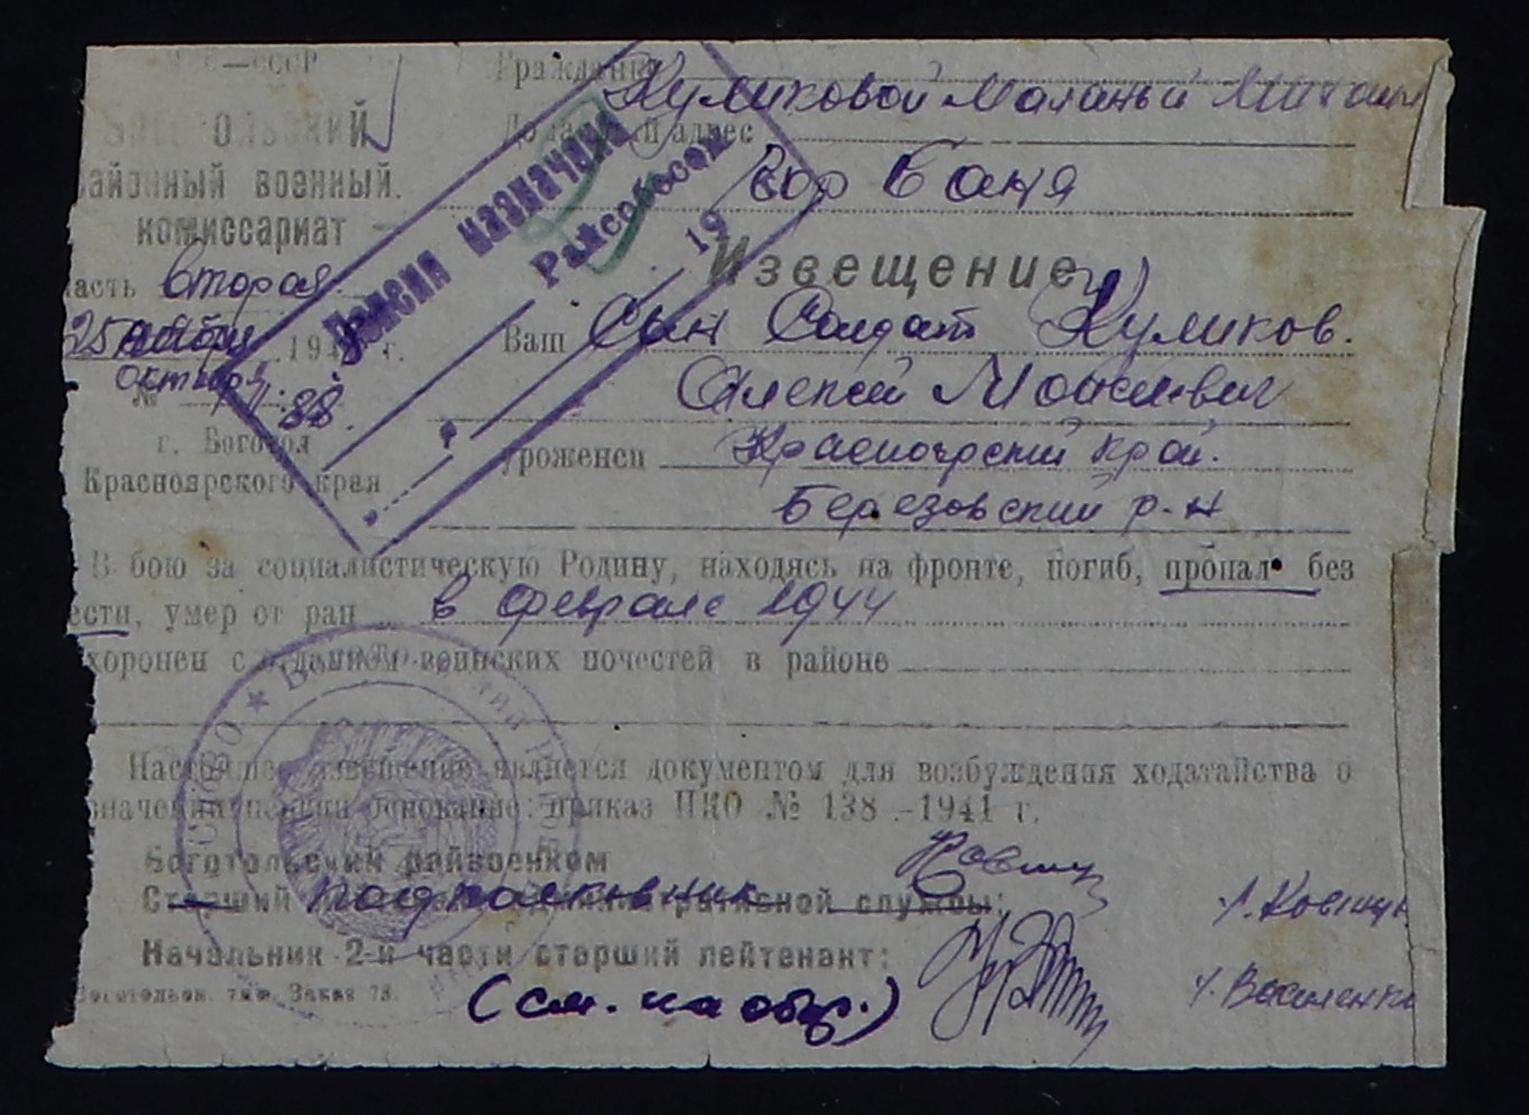 —СССР
ОЛЬСКИЙ
районный военный.
комиссариат
часть вторая
25 октября 194 г.
октября
№ 88.
г. Боготол
Красноярского края
Пенсия назначена
Райсобесом
19
Граждани
Куликовой Маланьи
Домашний адрес
гор Баня
Извещение
Ваш Сын Солдат Куликов.
Алексей Моисеевич
уроженец Красноярский край.
Березовский р-н
В бою за социалистическую Родину, находясь на фронте, погиб, пропал без
вести, умер от ран в феврале 1944
хоронен с отданием воинских почестей в районе
Настоящее извещение является документом для возбуждения ходатайства о
значении пенсии основание: приказ НКО № 138 -1941 г.
Боготольский райвоенком
Старший подполковник административной службы:
А. Ковшун
Начальник 2-й части старший лейтенант:
Василенко
Боготольск. тип. Заказ 78.
(см. на обор.)